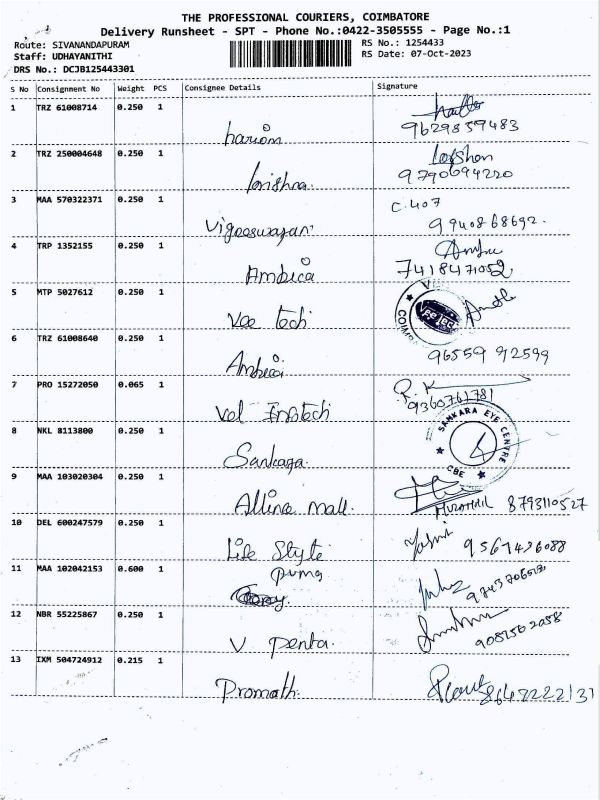 THE PROFESSIONAL COURIERS, COIMBATORE
Delivery Runsheet - SPT - Phone No.:0422-3505555 - Page No.:1
Route: SIVANANDAPURAM
RS No.: 1254433
Staff: UDHAYANITHI
RS Date: 07-Oct-2023
DRS No.: DCJB125443301
S No Consignment No Weight PCS Consignee Details Signature
1 TRZ 61008714 0.250 1
hariom 9629859483
2 TRZ 250004648 0.250 1
krishna. 9790694220
3 MAA 570322371 0.250 1 C.407
Vigneswaran 9940868692.
4 TRP 1352155 0.250 1
Ambica 7418471052
5 MTP 5027612 0.250 1
Vee tech
6 TRZ 61008640 0.250 1
Ambica 96559 92599
7 PRO 15272050 0.065 1 R.K
Vel Infotech 9360761781
8 NKL 8113800 0.250 1 SANKARA EYE CENTRE
Sankara. CBE
9 MAA 103020304 0.250 1
Alline mall. 8793110527
10 DEL 600247579 0.250 1
Life Style 9567436088
11 MAA 102042153 0.600 1
puma
12 NBR 55225867 0.250 1
V Penta. 9081562058
13 IXM 504724912 0.215 1
Promath. 8643222131